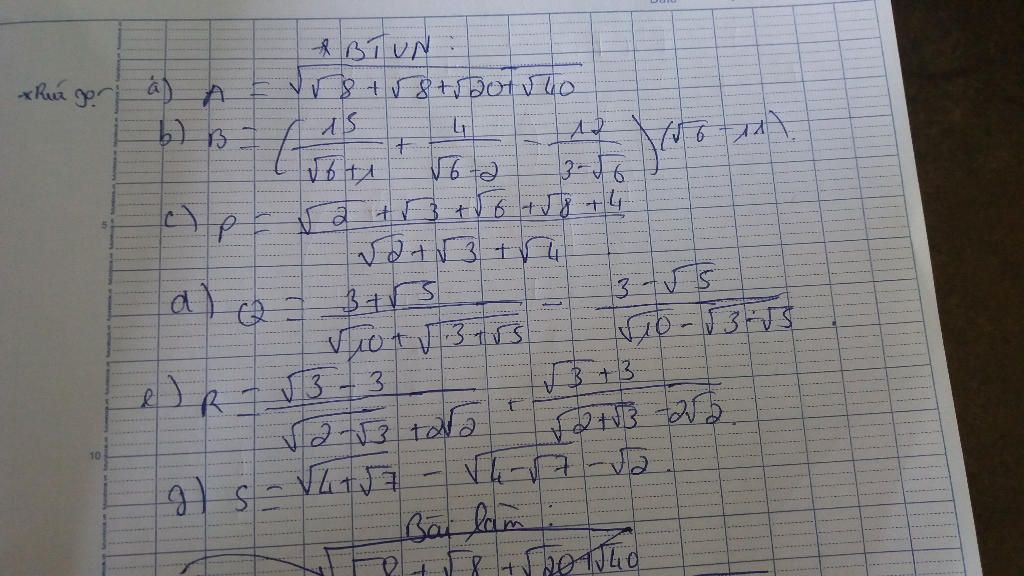 * BTVN :
* Rút gọn a) A = √(√8 + √8 + √20 + √40)
b) B = (15/(√6+1) + 4/(√6-2) - 12/(3-√6)) (√6 + 11).
5
c) P = (√2 + √3 + √6 + √8 + 4)/(√2 + √3 + √4)
d) Q = (3+√5)/(√10 + √(3+√5)) - (3-√5)/(√10 - √(3-√5)).
e) R = (√3 - 3)/(√(2-√3) + 2√2) + (√3 + 3)/(√(2+√3) - 2√2).
10
g) S = √(4+√7) - √(4-√7) - √2.
Bài làm :
√(√8 + √8 + √20 + √40)